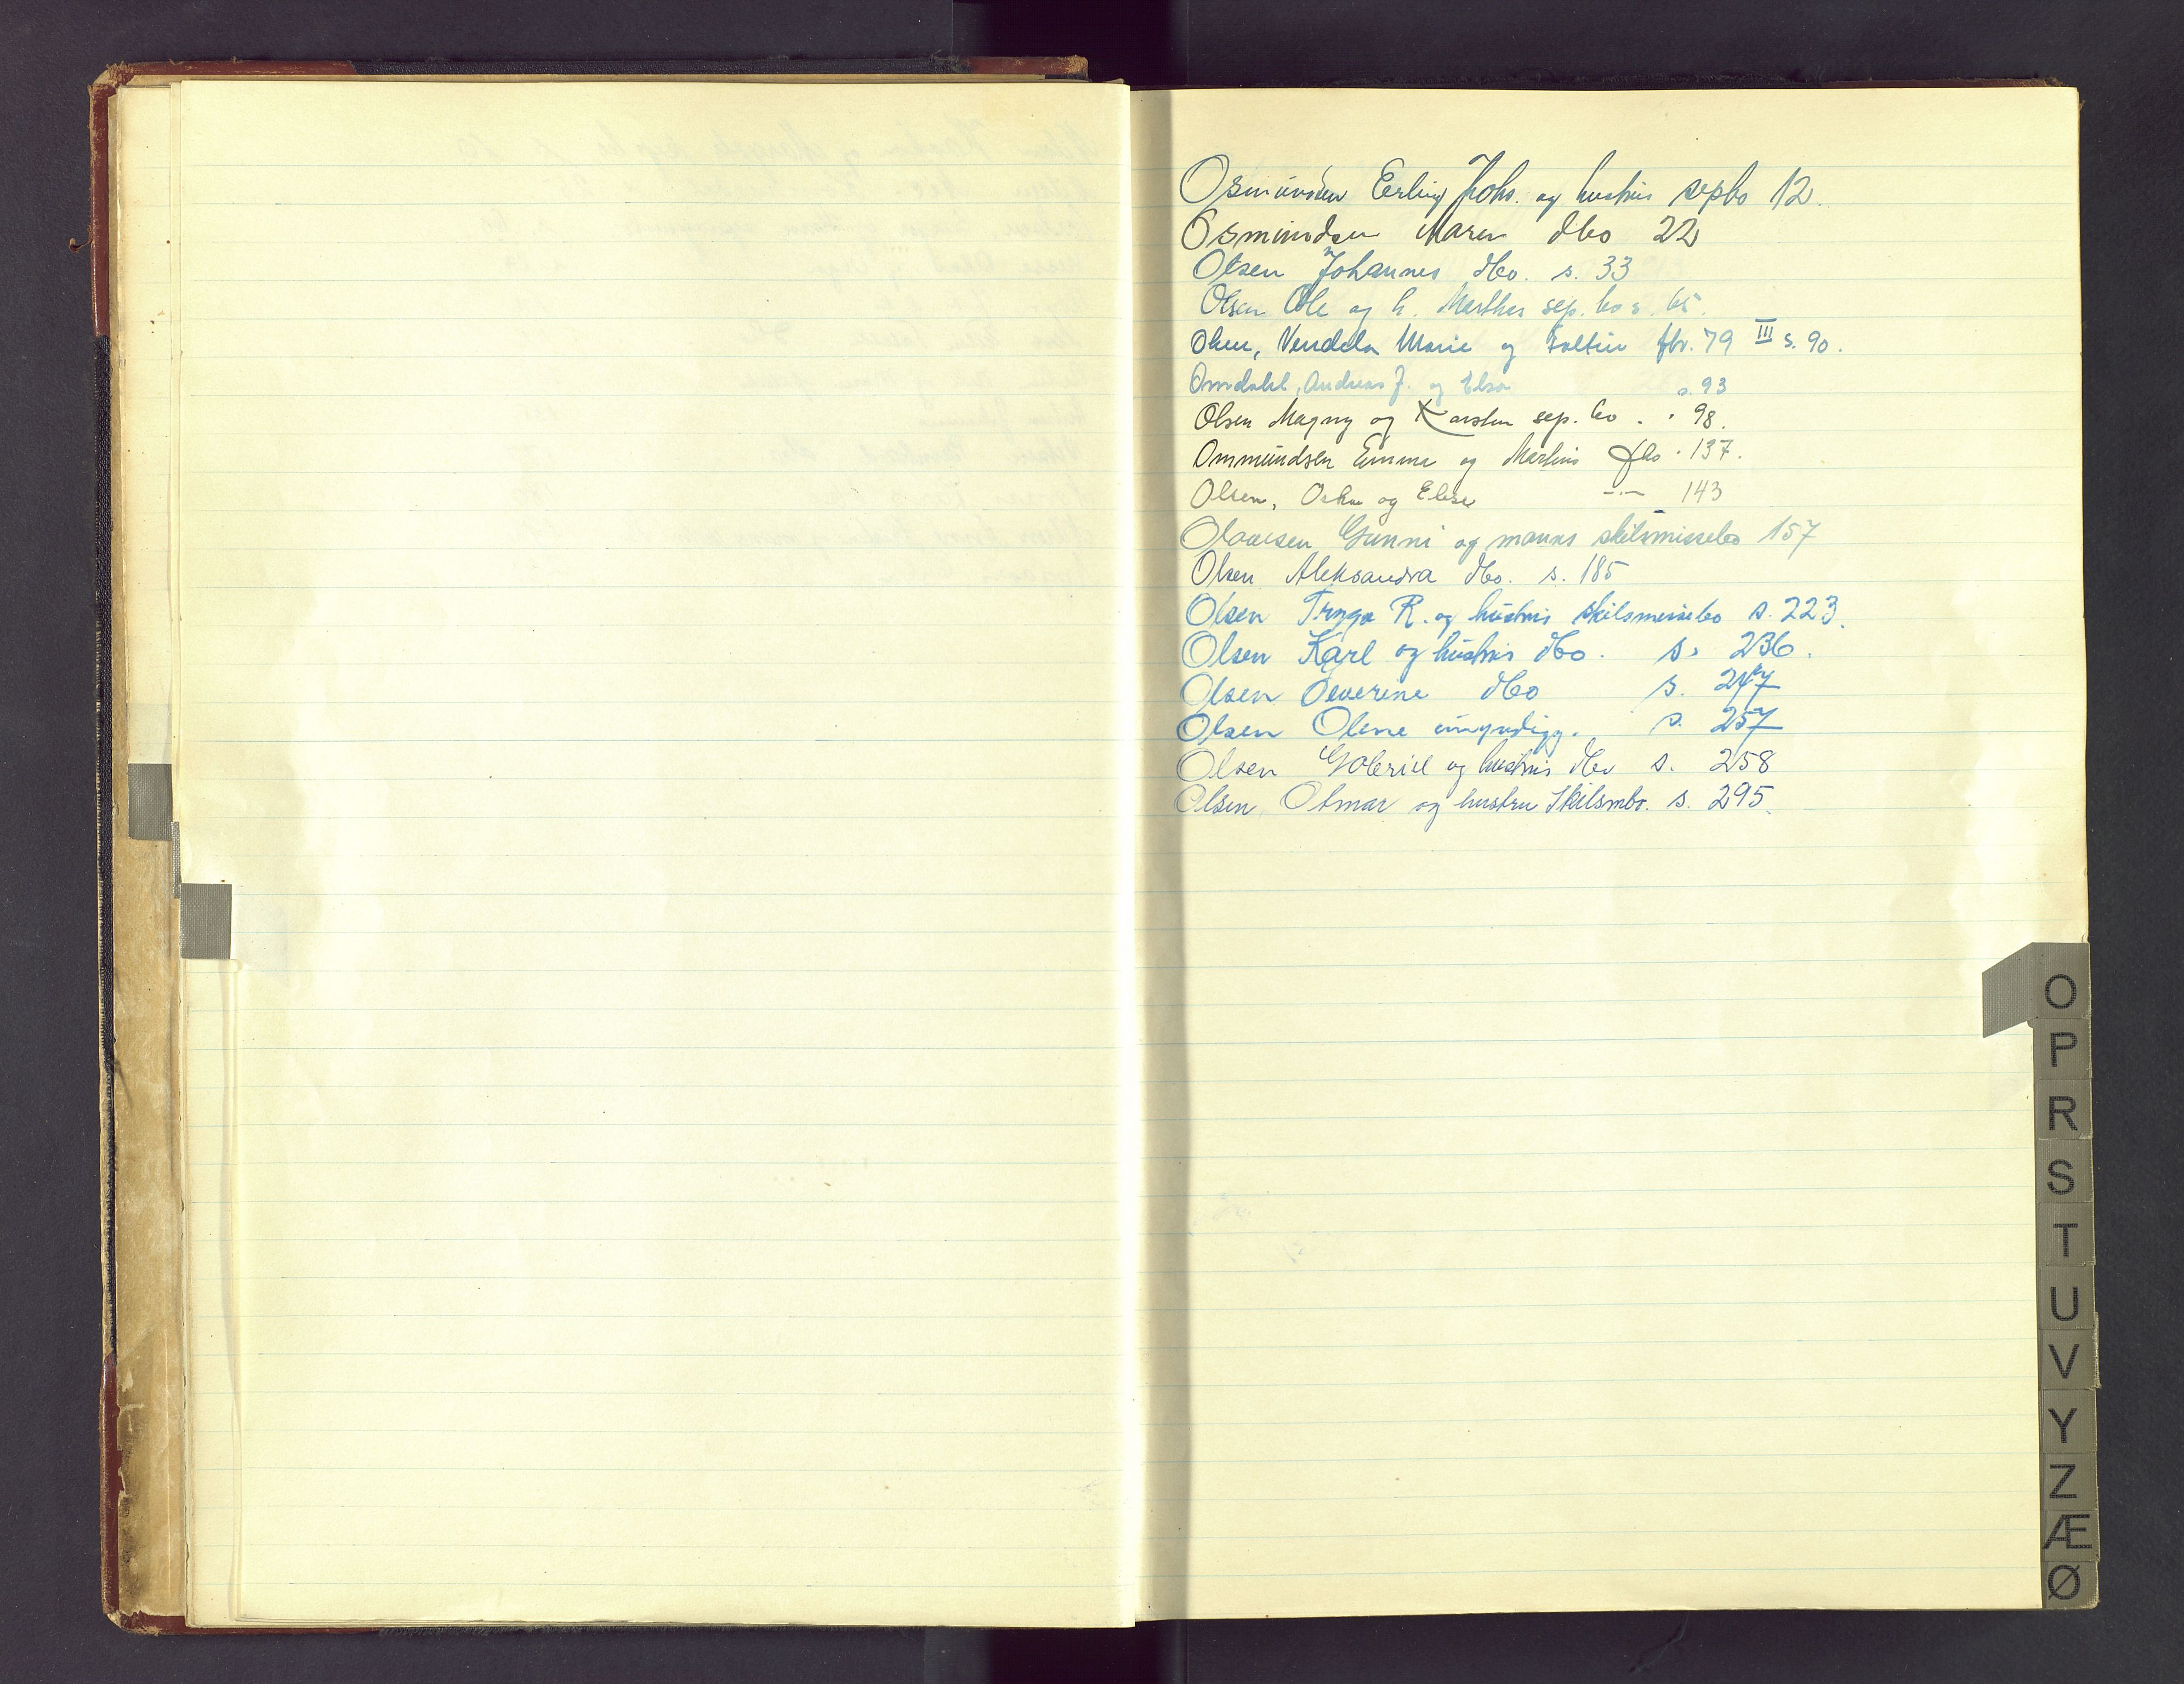 Osmundsen Erling Johs. og hustrus sepbo 12.
Osmundsen Maren dbo 22
Olsen Johannes dbo. s. 33
Olsen Ole og h. Marthes sep. bo s. 65.
Olsen, Vendela Marie og fbr. 79 III s. 90.
Omdahl, Andreas J. og Elsa s. 93
Olsen Magny og Karsten sep. bo . " 98.
Ommundsen Emma og Martins fbo " 137.
Olsen, Oskar og Elise -"- 143
Olavesen Gunni og manns skilsmissebo 157
Olsen Aleksandra dbo. s. 185
Olsen Trygve R. og hustrus skilsmissebo s. 223.
Olsen Karl og hustrus dbo. s. 236.
Olsen Severine dbo s. 247
Olsen Olene umyndigg. s. 257
Olsen Gabriel og hustrus dbo s. 258
Olsen, Otmar og hustru Skilsmbo. s. 295.
O
P
R
S
T
U
V
Y
Z
Æ
Ø